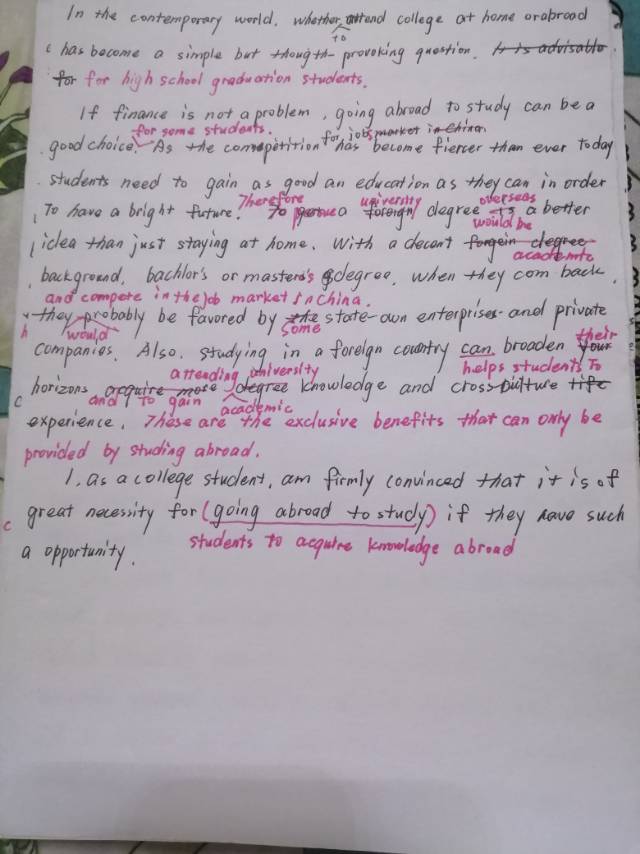 In the contemporary world, whether attend college at home orabroad
to
c has become a simple but though-provoking question. It is advisable
for for high school graduation students.
If finance is not a problem, going abroad to study can be a
for some students.
good choice. As the comepetition for jobs market in China has become fiercer than ever today
students need to gain as good an education as they can in order
Therefore pursue university overseas
To have a bright future. To a foreign degree is a better
would be
idea than just staying at home. With a decent forgein degree
academic
background, bachlor's or masteros degree, when they com back,
and compete in the job market in China.
they probably be favored by the state-own enterprises and private
h would some
companies. Also, studying in a foreign country can broaden your their
attending university helps students to
c horizons acquire more degree knowledge and cross-culture life
and to gain academic
experience. These are the exclusive benefits that can only be
provided by studing abroad.
I, as a college student, am firmly convinced that it is of
c great necessity for (going abroad to study) if they have such
a opportunity. students to acquire knowledge abroad